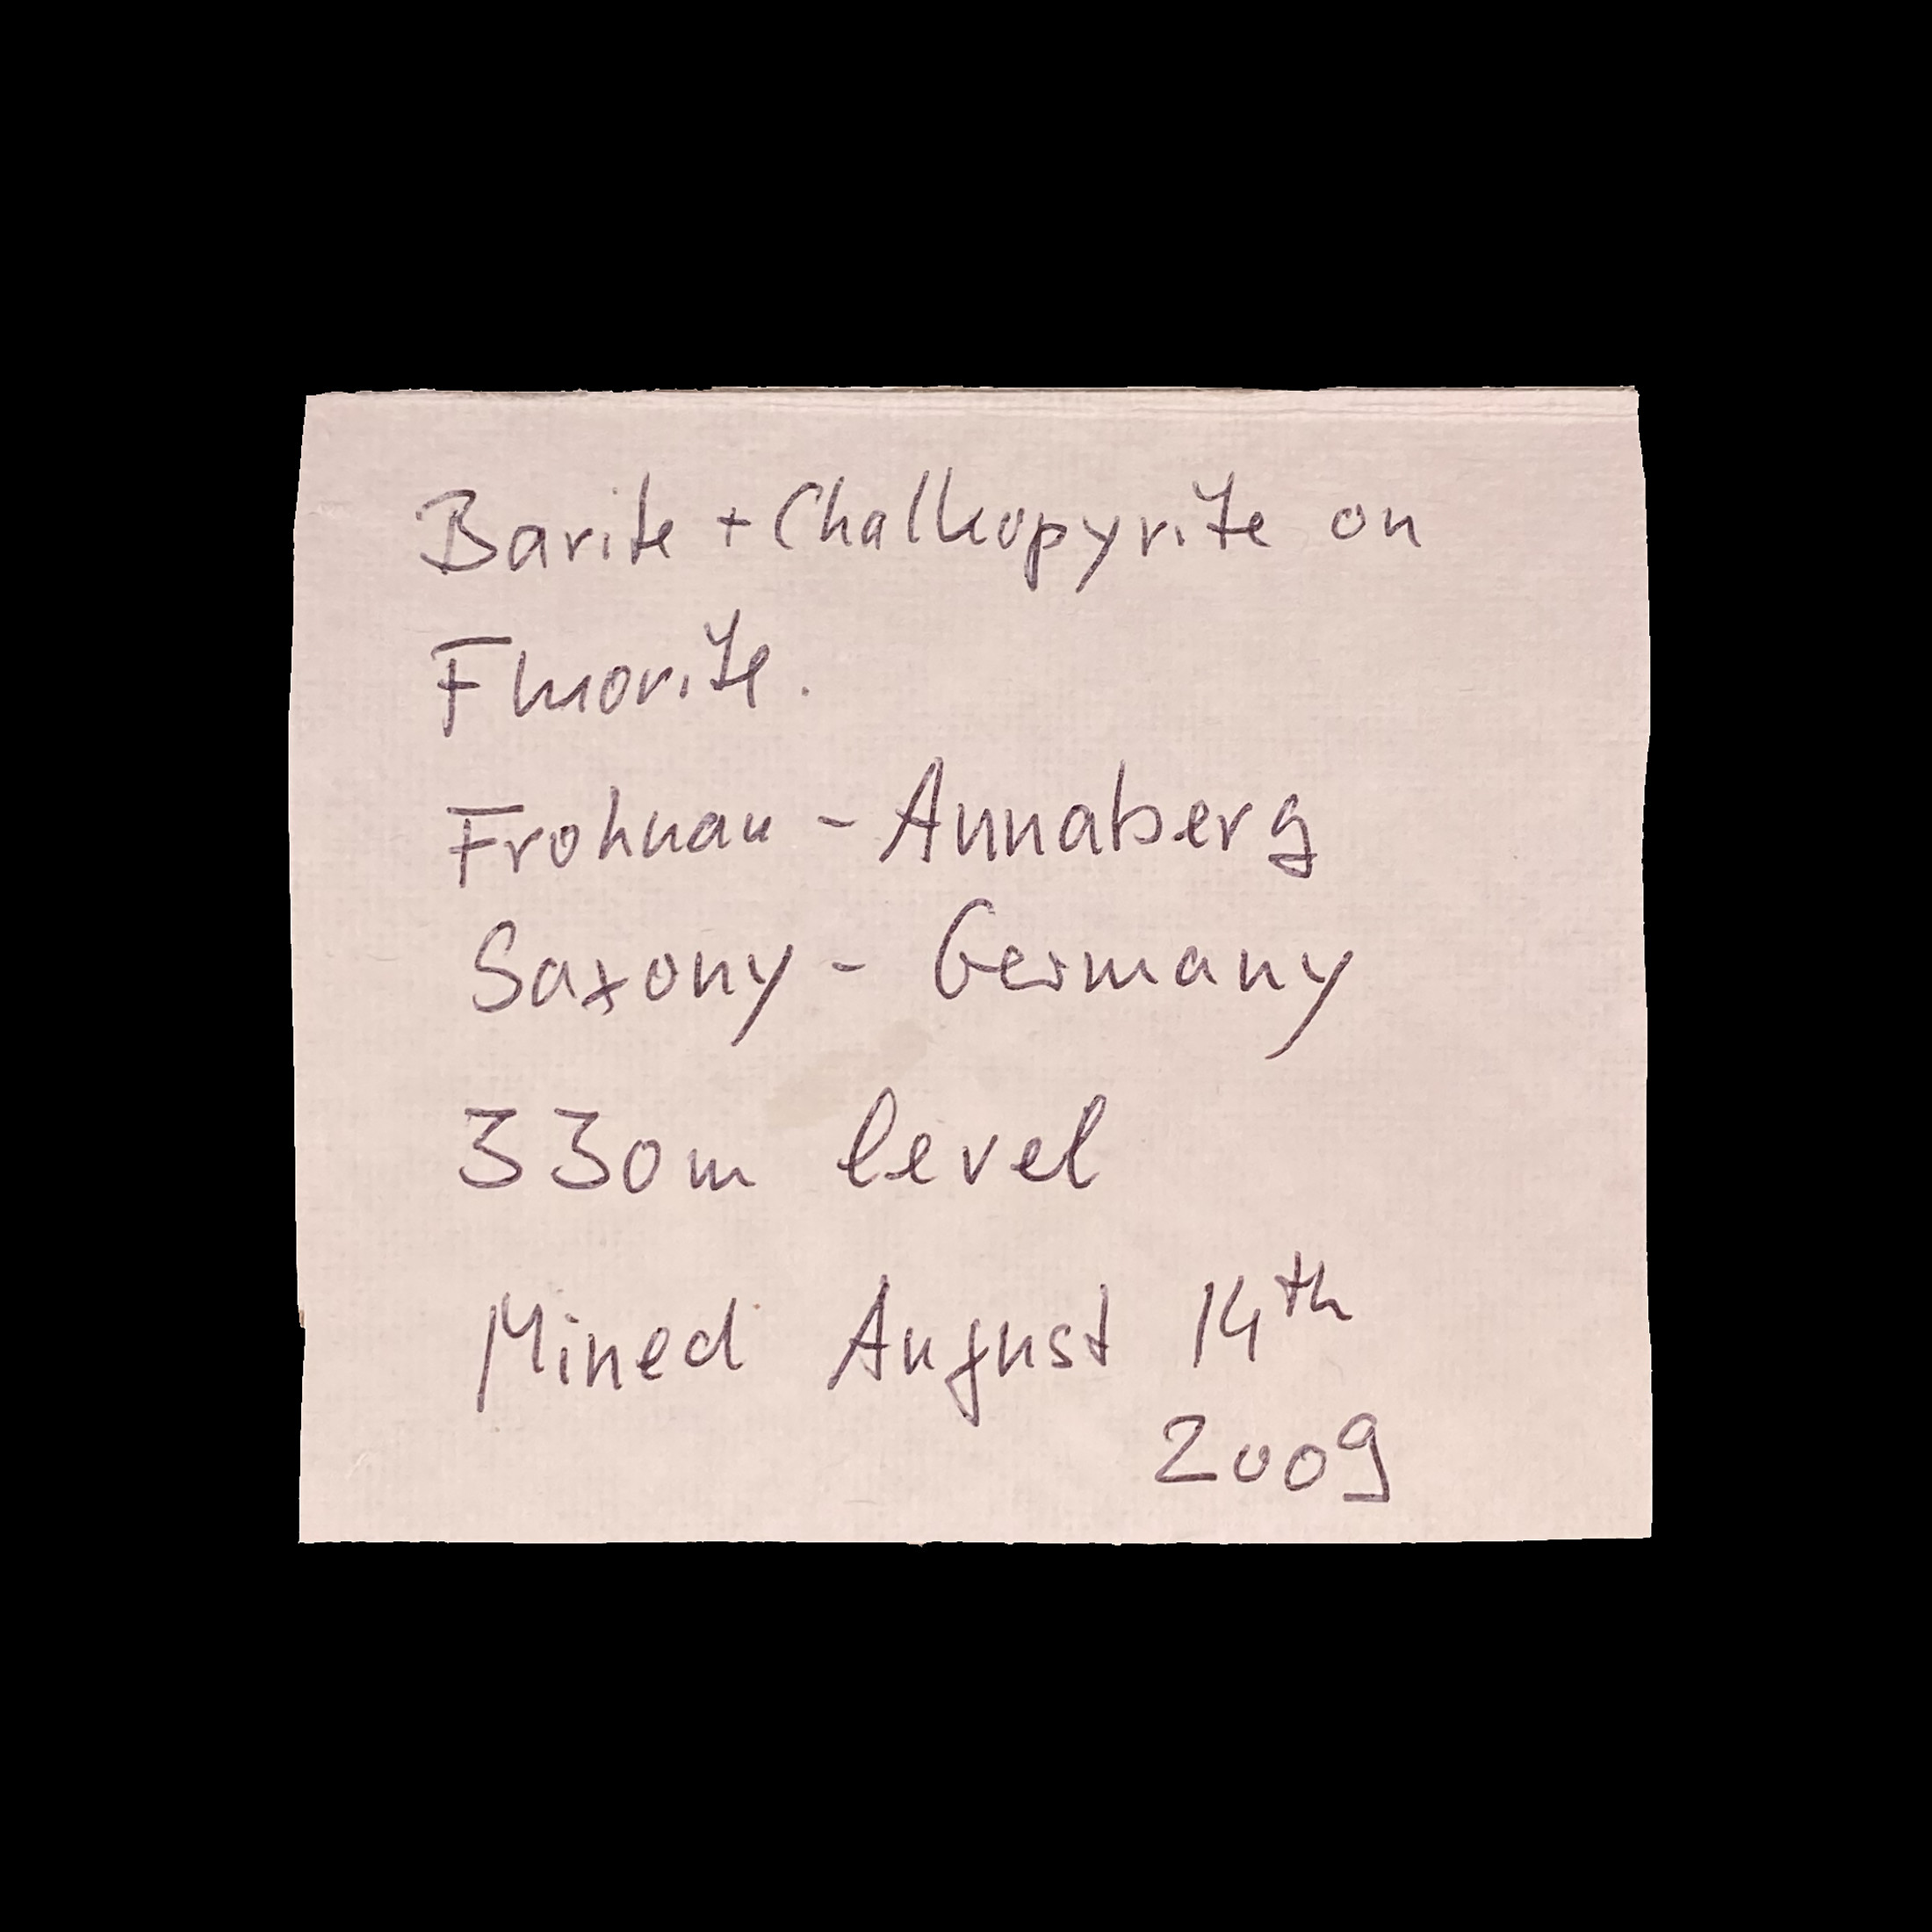 Barite + Chalkopyrite on
Fluorite.
Frohnau - Annaberg
Saxony - Germany
330m level
Mined August 14th
2009